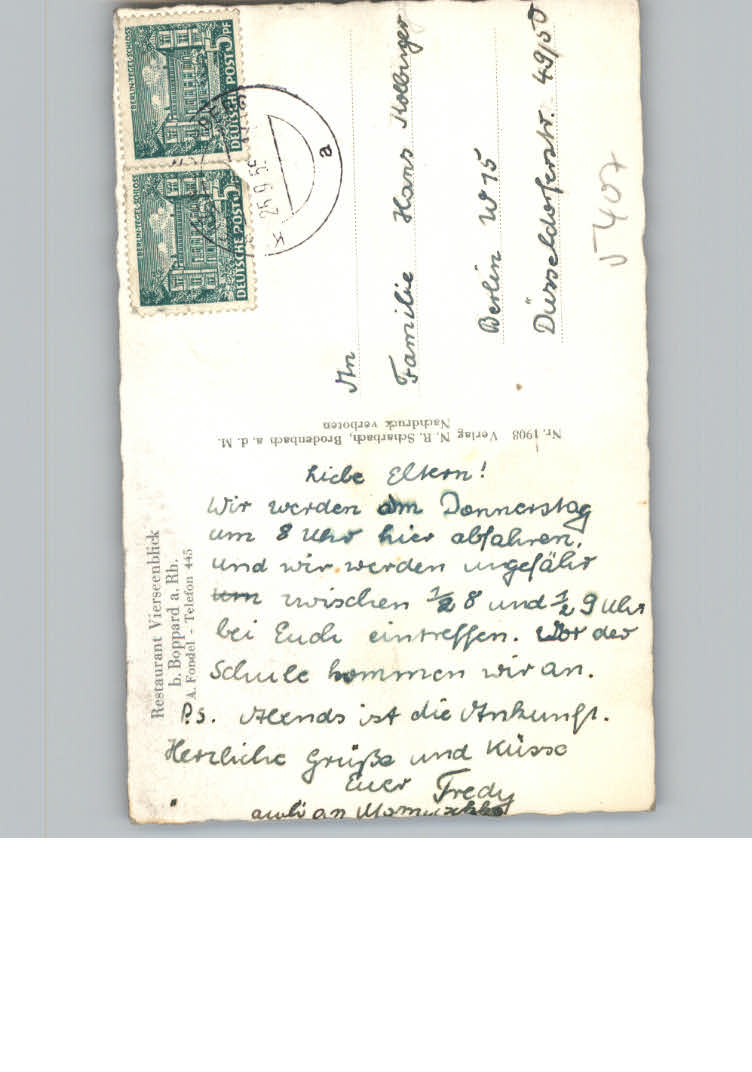 BERLIN-TEGEL·SCHLOSS
5 PF
DEUTSCHE POST
BERLIN-TEGEL·SCHLOSS
5 PF
DEUTSCHE POST
a
An
Familie Hans Kolbinger
Berlin W 15
Düsseldorferstr. 49/50
5407
Nr. 1908 Verlag N. R. Scharbach, Brodenbach a. d. M.
Nachdruck verboten
Restaurant Vierseenblick
b. Boppard a. Rh.
A. Fondel - Telefon 445
Liebe Eltern!
Wir werden am Donnerstag
um 8 Uhr hier abfahren,
und wir werden ungefähr
um zwischen ½ 8 und ½ 9 Uhr
bei Euch eintreffen. Vor der
Schule kommen wir an.
P.s. Abends ist die Ankunft.
Herzliche Grüße und Küsse
Euer Fredy
auch an